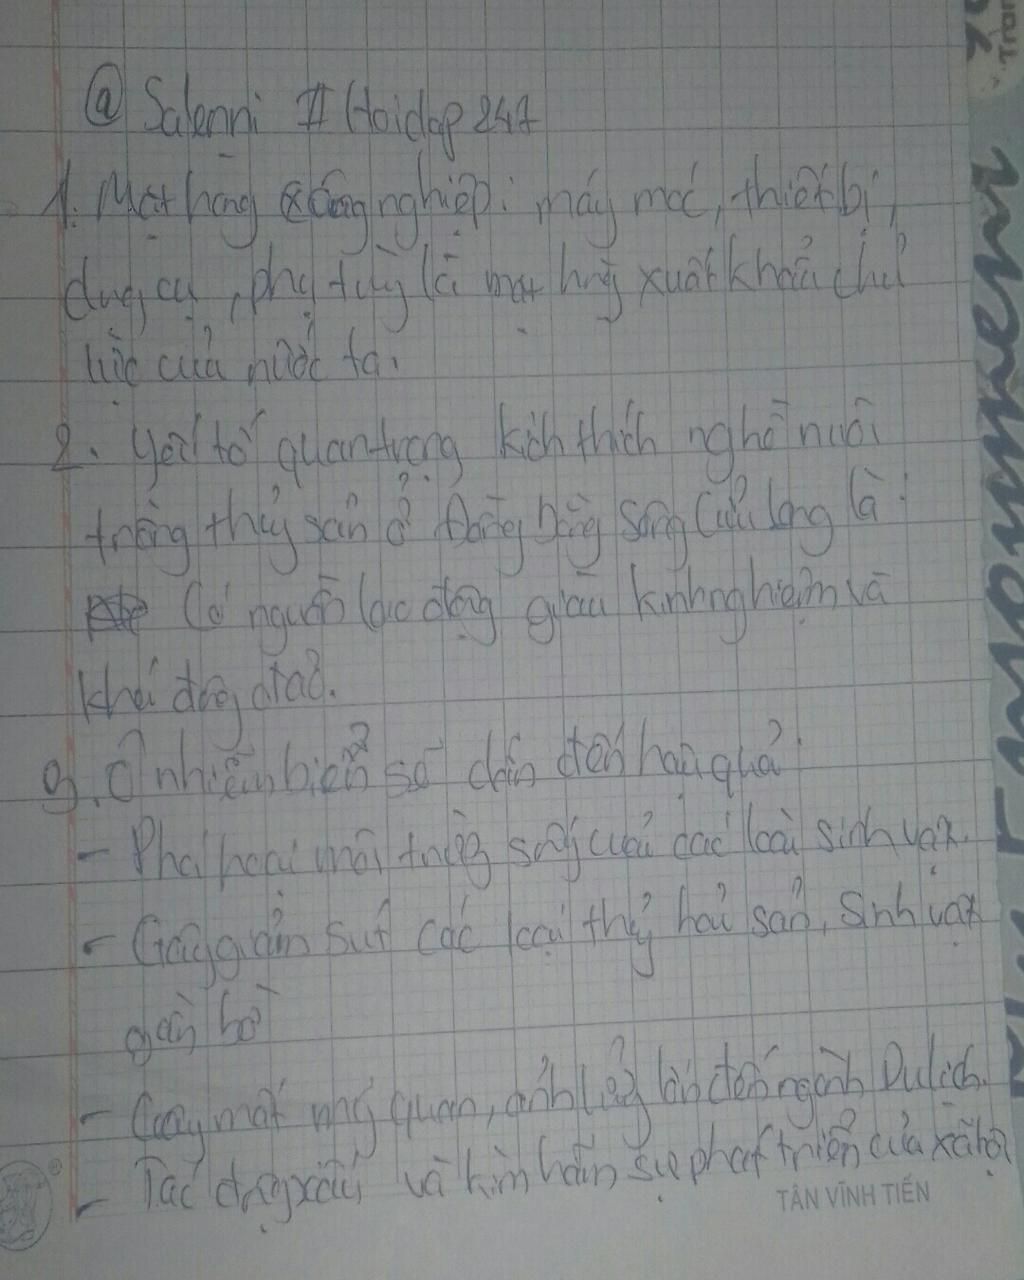 @ Salenni # Hoidap247
1. Mặt hàng công nghiệp: máy móc, thiết bị,
dụng cụ, phụ tùng là mặt hàng xuất khẩu chủ
lực của nước ta.
2. Yếu tố quan trọng kích thích nghề nuôi
trồng thủy sản ở Đồng bằng sông Cửu Long là:
Có nguồn lao động giàu kinh nghiệm và
khá đông đảo.
3. Ô nhiễm biển sẽ dẫn đến hậu quả:
- Phá hoại môi trường sống của các loài sinh vật.
- Gây giảm sút các loại thủy hải sản, sinh vật
gần bờ
- Gây mất mỹ quan, ảnh hưởng lớn đến ngành Du lịch.
- Tác động xấu và kìm hãm sự phát triển của xã hội
TÂN VĨNH TIẾN